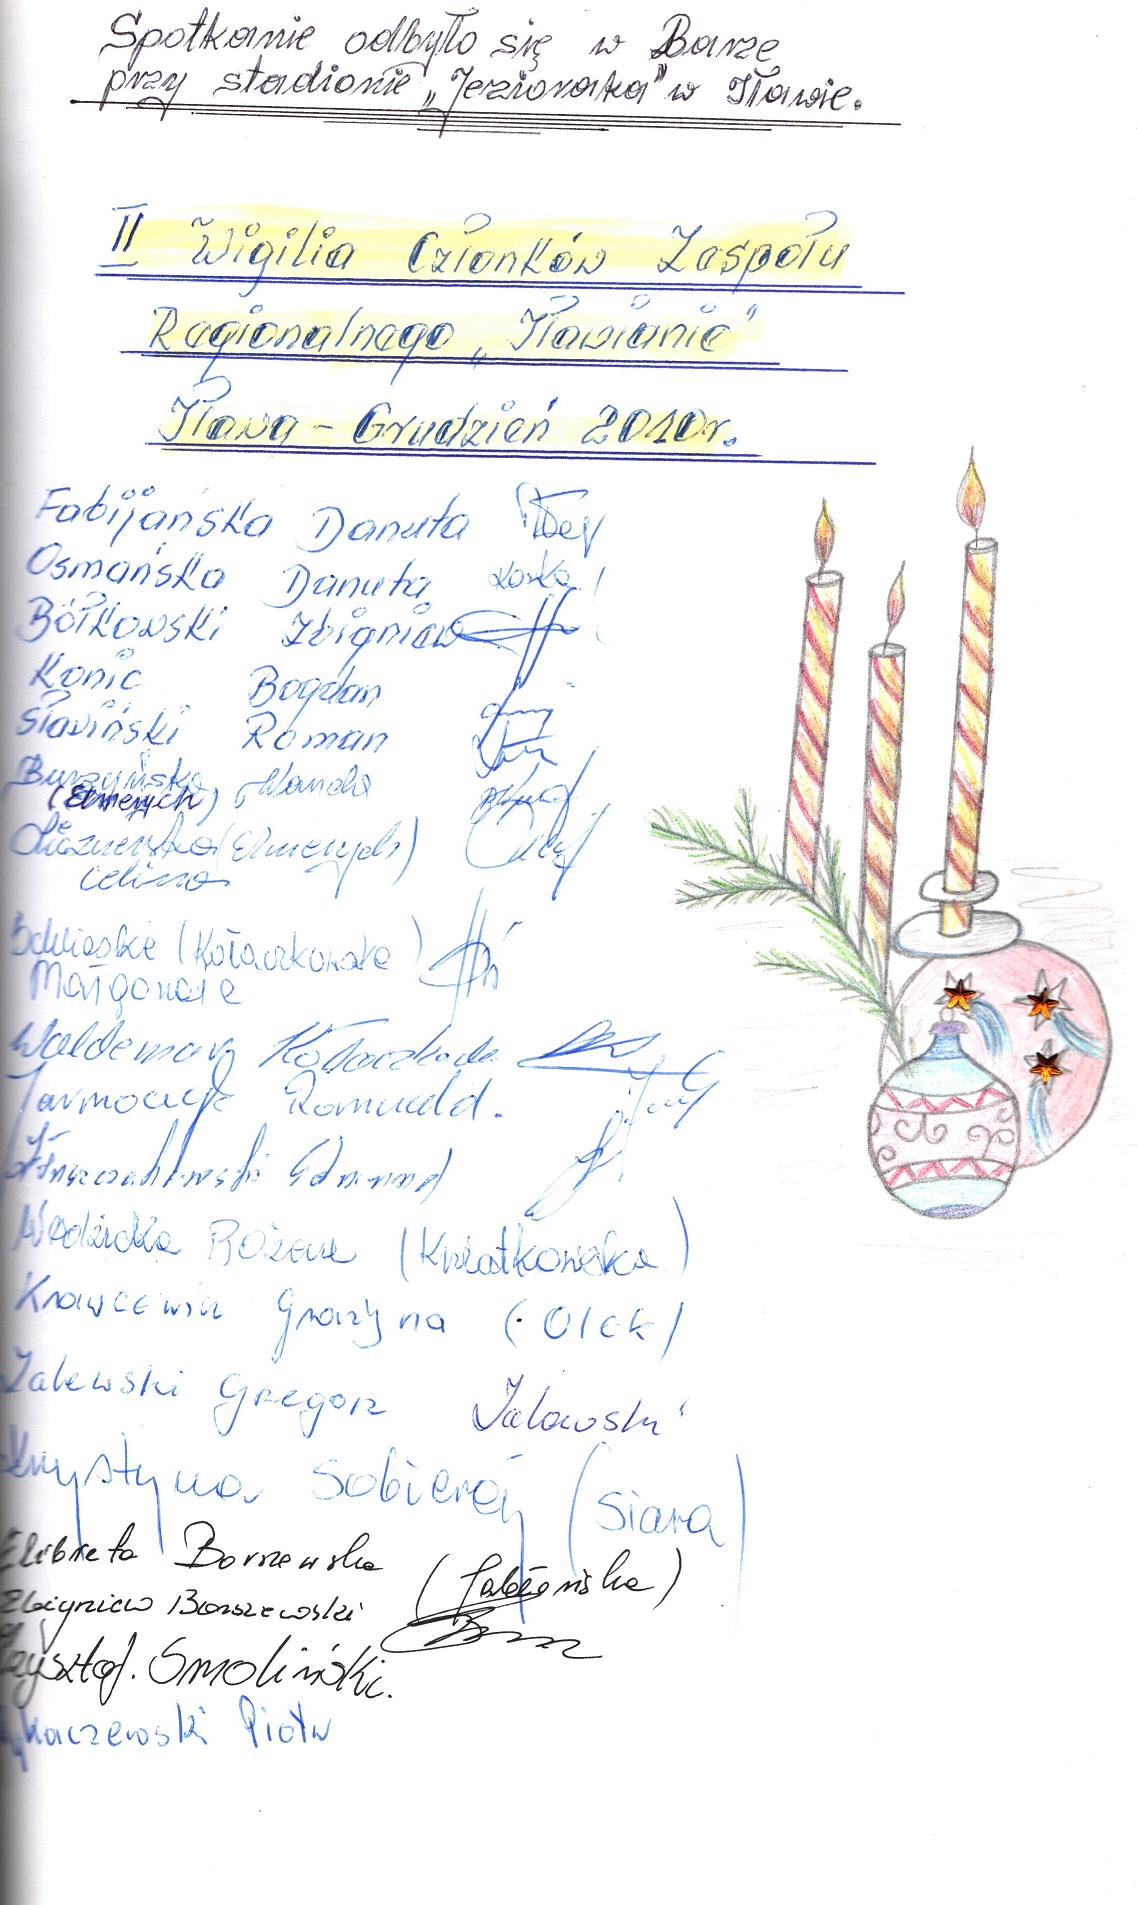 Spotkanie odbyło się w Barze
przy stadionie „Jeziorak” w Iławie.
II Wigilia Członków Zespołu
Regionalnego „Iławianie”
Iława – Grudzień 2010r.
Fabijańska Danuta
Osmańska Danuta
Bółkowski Zbigniew
Konic Bogdan
Sławiński Roman
Burzyńska Wanda
(Elmerych)
(Elmerych)
Celina
(Kołaczkowska)
Małgorzata
Waldemar
Jarmoczyk Romuald.
Edmund
Bożena (Kwiatkowska)
Grażyna (Olek)
Zalewski Gregorz Zalewski
Krystyna Sobieraj (Siara)
Elżbieta Barszewska
Zbigniew Barszewski
Krzysztof. Smoliński.
Piotr